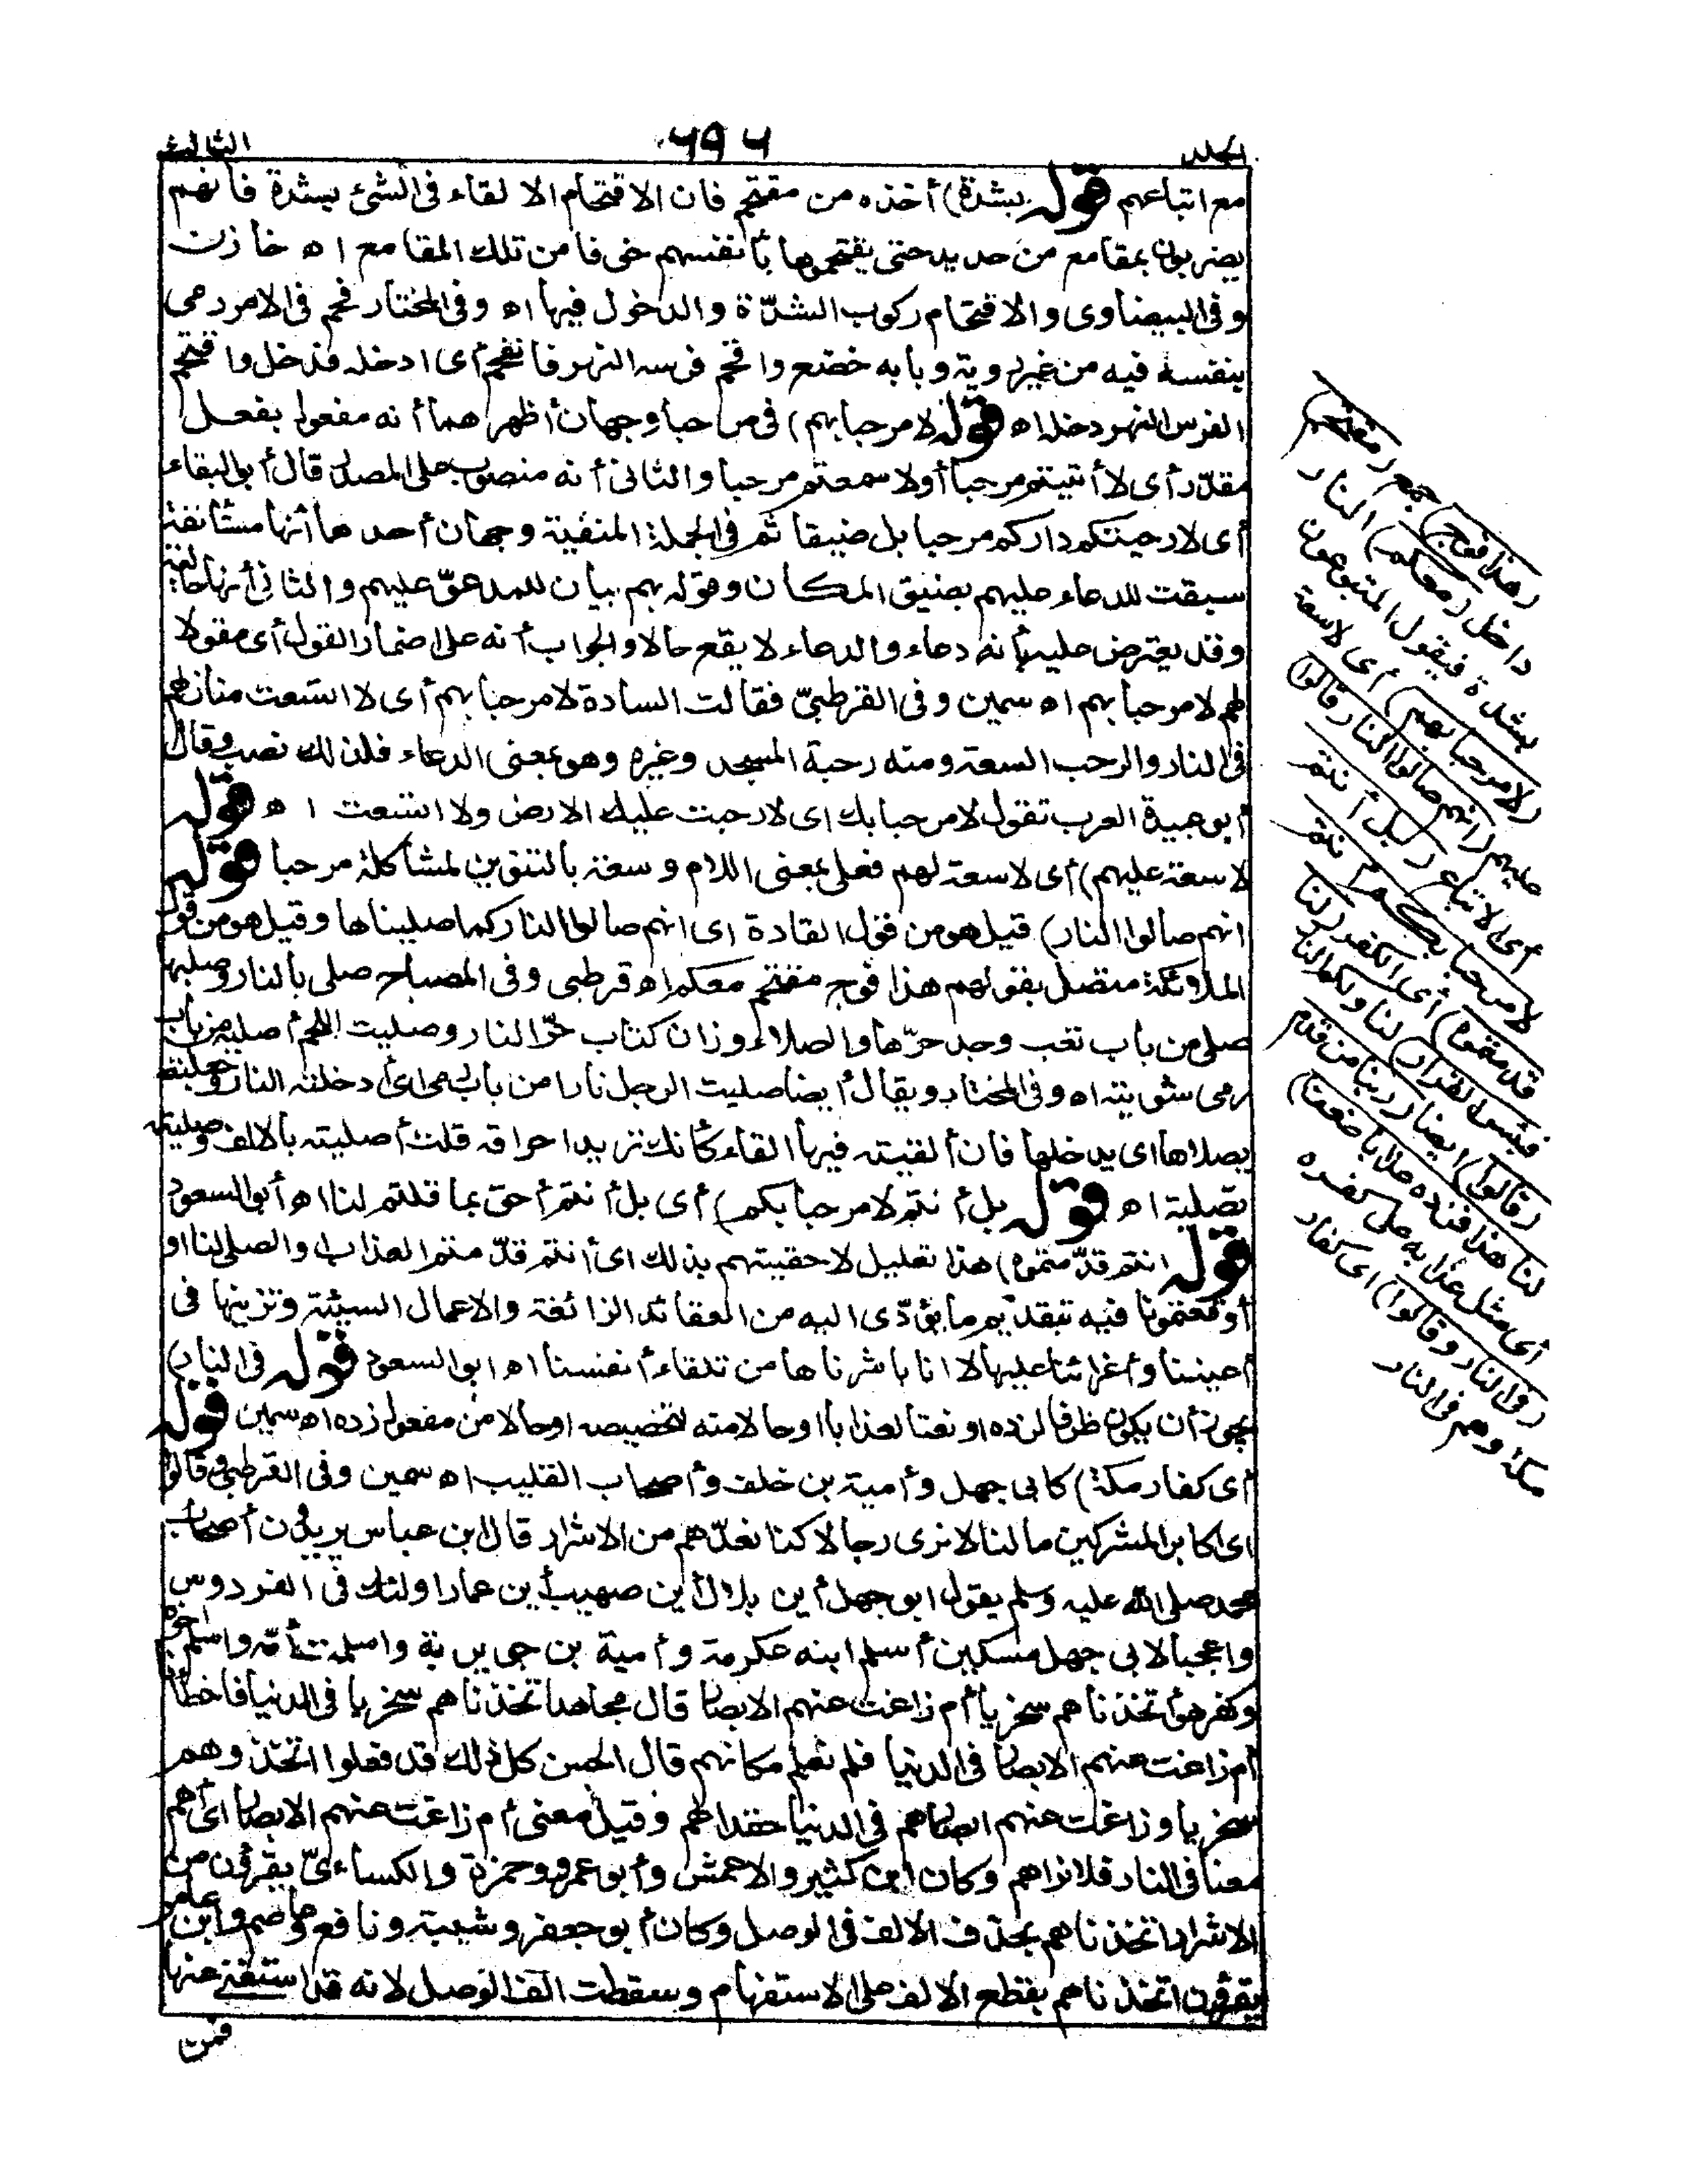 المجلد
٦٩٦
الثالث
مع اتباعهم قوله بشدة) أخذه من مقتحم فان الاقتحام الالقاء فى الشئ بشدة فانهم
يضربون بمقامع من حديد حتى يقتحموها بأنفسهم خوفا من تلك المقامع اه خازن
وفى البيضاوى والاقتحام ركوب الشدّة والدخول فيها اه وفى المختار قحم فى الامر رمى
بنفسه فيه من غير روية وبابه خضع واقحم فرسه النهر فانقحم أى ادخله فدخل واقتحم
الفرس النهر دخله اه قوله لا مرحبا بهم) فى مرحبا وجهان أظهرهما أنه مفعول بفعل
مقدّر أى لا أتيتم مرحبا أو لا سمعتم مرحبا والثانى أنه منصوب على المصدر قال أبو البقاء
أى لا رحبتكم داركم مرحبا بل ضيقا ثم فى الجملة المنفية وجهان أحدها أنها مستأنفة
سيقت للدعاء عليهم بضيق المكان وقوله بهم بيان للمدعوّ عليهم والثانى أنها حالية
وقد يعترض عليه بأنه دعاء والدعاء لا يقع حالا والجواب أنه على اضمار القول أى مقولا
لهم لا مرحبا بهم اه سمين وفى القرطبىّ فقالت السادة لا مرحبا بهم أى لا اتسعت منازلهم
فى النار والرحب السعة ومنه رحبة المسجد وغيره وهو بمعنى الدعاء فلذلك نصب وقال
أبو عبيدة العرب تقول لا مرحبا بك اى لا رحبت عليك الارض ولا اتسعت اه قوله
لا سعة عليهم) أى لا سعة لهم فعلى بمعنى اللام وسعة بالتنوين لمشاكلة مرحبا قوله
انهم صالوا النار) قيل هو من قول القادة اى انهم صالوا النار كما صليناها وقيل هو من قول
الملائكة متصل بقولهم هذا فوج مقتحم معكم اه قرطبى وفى المصباح صلى بالنار وصليها
صلى من باب تعب وجد حرّها والصلاء وزان كتاب حرّ النار وصليت اللحم أصليه من باب
رمى شويته اه وفى المختار ويقال أيضا صليت الرجل نارا من باب رمى اى أدخلته النار وجعلته
يصلاها اى يدخلها فان ألقيته فيها القاء كأنك تريد احراقه قلت أصليته بالالف وصليته
تصلية اه قوله بل أنتم لا مرحبا بكم) أى بل أنتم أحق بما قلتم لنا اه أبو السعود
قوله انتم قدّمتموه) هذا تعليل لاحقيتهم بذلك اى أنتم قدّمتم العذاب والصلى لنا او
أوقعتمونا فيه بتقديم ما يؤدّى اليه من العقائد الزائغة والاعمال السيئة وتزيينها فى
أعيننا وأغرائنا عليها لا انا باشرناها من تلقاء أنفسنا اه ابو السعود قوله فى النار)
يجوز أن يكون ظرفا لزده او نعتا لعذابا او حالا منه لتخصيصه او حالا من مفعول زده اه سمين قوله
أى كفار مكة) كابى جهل وأمية بن خلف وأصحاب القليب اه سمين وفى القرطبى وقالوا
اى اكابر المشركين ما لنا لا نرى رجالا كنا نعدّهم من الاشرار قال ابن عباس يريدون أصحاب
محمد صلى الله عليه وسلم يقول ابو جهل أين بلال أين صهيب أين عمار اولئك فى الفردوس
واعجبا لابى جهل مسكين أسلم ابنه عكرمة وأمية بن جويرية واسلمت أمّه واسلم أخوه
وكفر هو أتخذناهم سخريا أم زاغت عنهم الابصار قال مجاهد اتخذناهم سخريا فى الدنيا فاخطأنا
أم زاغت عنهم الابصار فى الدنيا فلم نعلم مكانهم قال الحسن كل ذلك قد فعلوا اتخذوهم
سخريا وزاغت عنهم ابصارهم فى الدنيا حقدا لهم وقيل معنى أم زاغت عنهم الابصار اى أهم
معنا فى النار فلا نراهم وكان ابن كثير والاعمش وأبو عمرو وحمزة والكساءىّ يقرؤن من
الاشرار اتخذناهم بحذف الالف فى الوصل وكان أبو جعفر وشيبة ونافع وعاصم وابن عامر
يقرؤن اتخذناهم بقطع الالف على الاستفهام وسقطت الف الوصل لانه قد استغنى عنها
فمن
(هذا فوج) جمع (مقتحم)
داخل (معكم) النار
بشدة فيقول المتبوعون
(لا مرحبا بهم) أى لا سعة
عليهم (انهم صالوا النار قالوا)
أى الاتباع (بل أنتم
لا مرحبا بكم أنتم
قدمتموه) أى الكفر (لنا
فبئس القرار) لنا ولكم النار
(قالوا) ايضا (ربنا من قدم
لنا هذا فزده عذابا ضعفا)
أى مثل عذابه على كفره
(فى النار وقالوا) اى كفار
مكة وهم فى النار